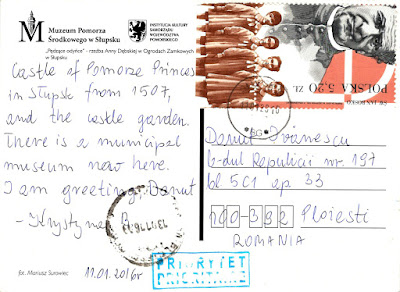 Muzeum Pomorza
Środkowego w Słupsku
INSTYTUCJA KULTURY
SAMORZĄDU
WOJEWÓDZTWA
POMORSKIEGO
"Pasące odyńce" - rzeźba Anny Dębskiej w Ogrodach Zamkowych
w Słupsku
Castle of Pomorze Princes
in Słupsk from 1507,
and the castle garden.
There is a municipal
museum now here.
I am greeting, Danut
- Krystyna
fot. Mariusz Surowiec
11.01.2016r
POLSKA 5,20 ZŁ
BG
Danut Ivanescu
b-dul Republicii nr. 197
bl 5C1 ap 33
100-392 Ploiesti
ROMANIA
PRIORYTET
PRIORITAIRE